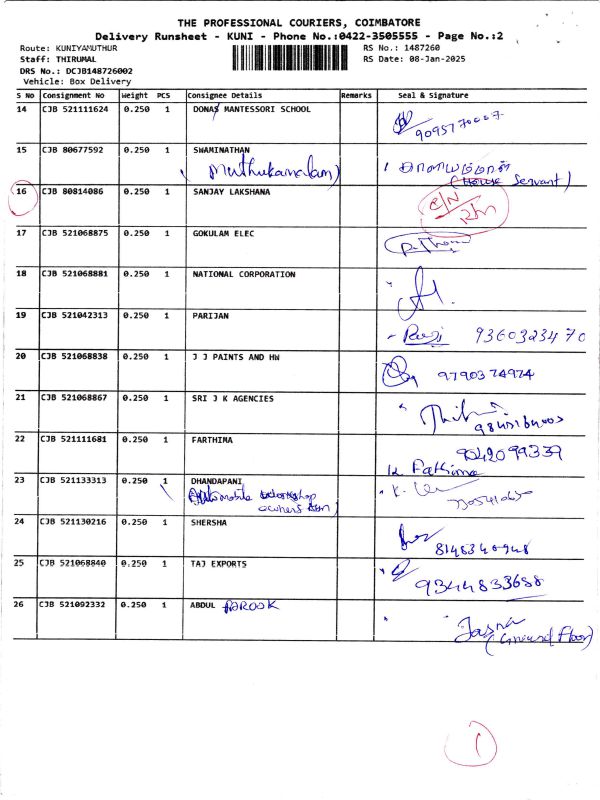 THE PROFESSIONAL COURIERS, COIMBATORE
Delivery Runsheet - KUNI - Phone No.:0422-3505555 - Page No.:2
Route: KUNIYAMUTHUR RS No.: 1487260
Staff: THIRUMAL RS Date: 08-Jan-2025
DRS No.: DCJB148726002
Vehicle: Box Delivery
S No Consignment No Weight PCS Consignee Details Remarks Seal & Signature
14 CJB 521111624 0.250 1 DONAS MANTESSORI SCHOOL
15 CJB 80677592 0.250 1 SWAMINATHAN
(Muthukamalam)
(House Servant)
16 CJB 80814086 0.250 1 SANJAY LAKSHANA
17 CJB 521068875 0.250 1 GOKULAM ELEC
18 CJB 521068881 0.250 1 NATIONAL CORPORATION
19 CJB 521042313 0.250 1 PARIJAN
9360323470
20 CJB 521068838 0.250 1 J J PAINTS AND HW
9790374974
21 CJB 521068867 0.250 1 SRI J K AGENCIES
22 CJB 521111681 0.250 1 FARTHIMA
9042099339
K. Fathima
23 CJB 521133313 0.250 1 DHANDAPANI
Automobile workshop
owners
24 CJB 521130216 0.250 1 SHERSHA
25 CJB 521068840 0.250 1 TAJ EXPORTS
9344833688
26 CJB 521092332 0.250 1 ABDUL FAROOK
(Ground Floor)
1